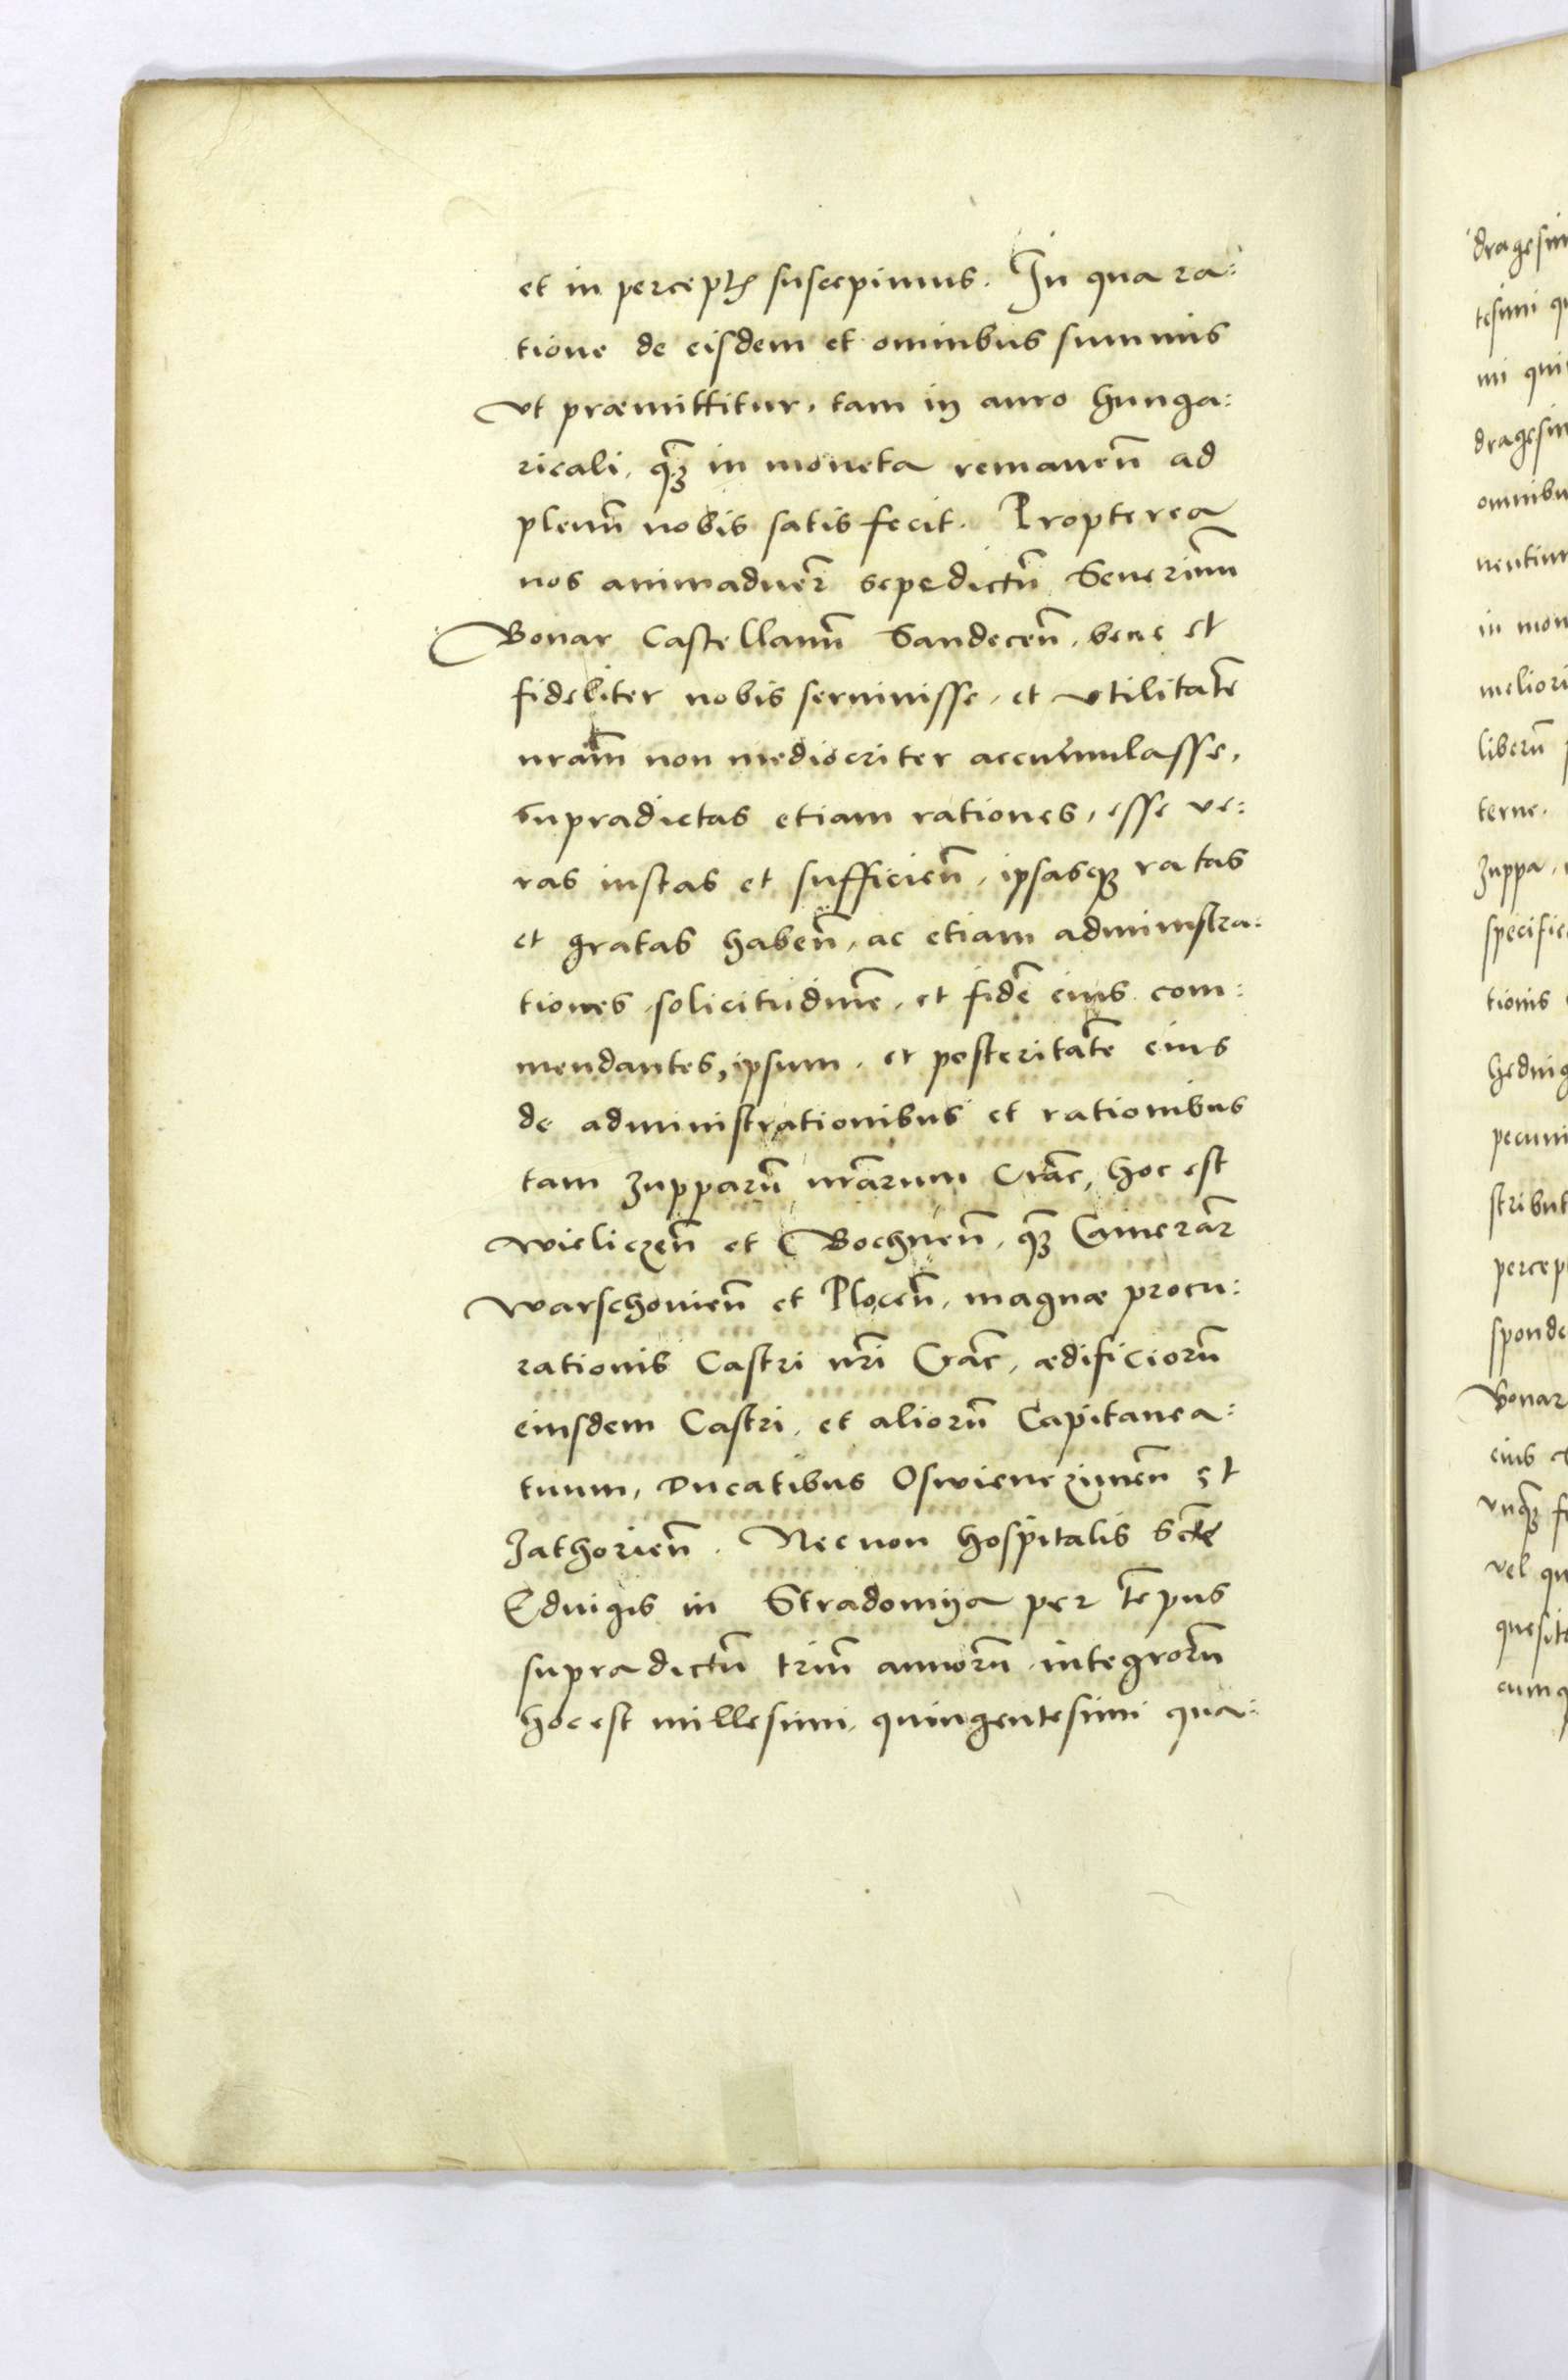 et in perceptis suscepimus. In qua ra:
tione de eisdem et omnibus summis
vt præmittitur, tam in auro hunga:
ricali, quam in moneta remanen̄ ad
plenū nobis satis fecit. Propterea
nos animaduer̄ sepedictū Seuerinum
Bonar Castellanū Sandecen̄, bene et
fideliter nobis seruiuisse, et vtilitatē
nram̄ non mediocriter accumulasse,
Supradictas etiam rationes, esse ve:
ras iustas et sufficien̄, ipsasque ratas
et gratas haben̄, ac etiam administra:
tiones solicitudinē, et fidē eius com:
mendantes, ipsum, et posteritatē eius
de administrationibus et rationibus
tam zupparū nrārum Crac̄, hoc est
Wieliczen̄ et Bochnen̄, quam Camerar̄
Warschouien̄ et Plocen̄, magnæ procu:
rationis Castri nrī Crac̄, ædificiorū
eiusdem Castri, et aliorū Capitanea:
tuum, Ducatibus Oswienczimen̄ et
Zathorien̄. Necnon hospitalis Sctē
Eduigis in Stradomya per tēpus
supradictū triū annorū integrorū
hoc est millesimi, quingentesimi qua:
dragesim
tesimi qu
mi qui
dragesim
omnibu
in mon
meliori
liberū
terne.
zuppa,
specific
tionis
hedui
pecuni
stribut
percep
sponde
Bonar
eius
vnquam
vel qu
quesit
cumq